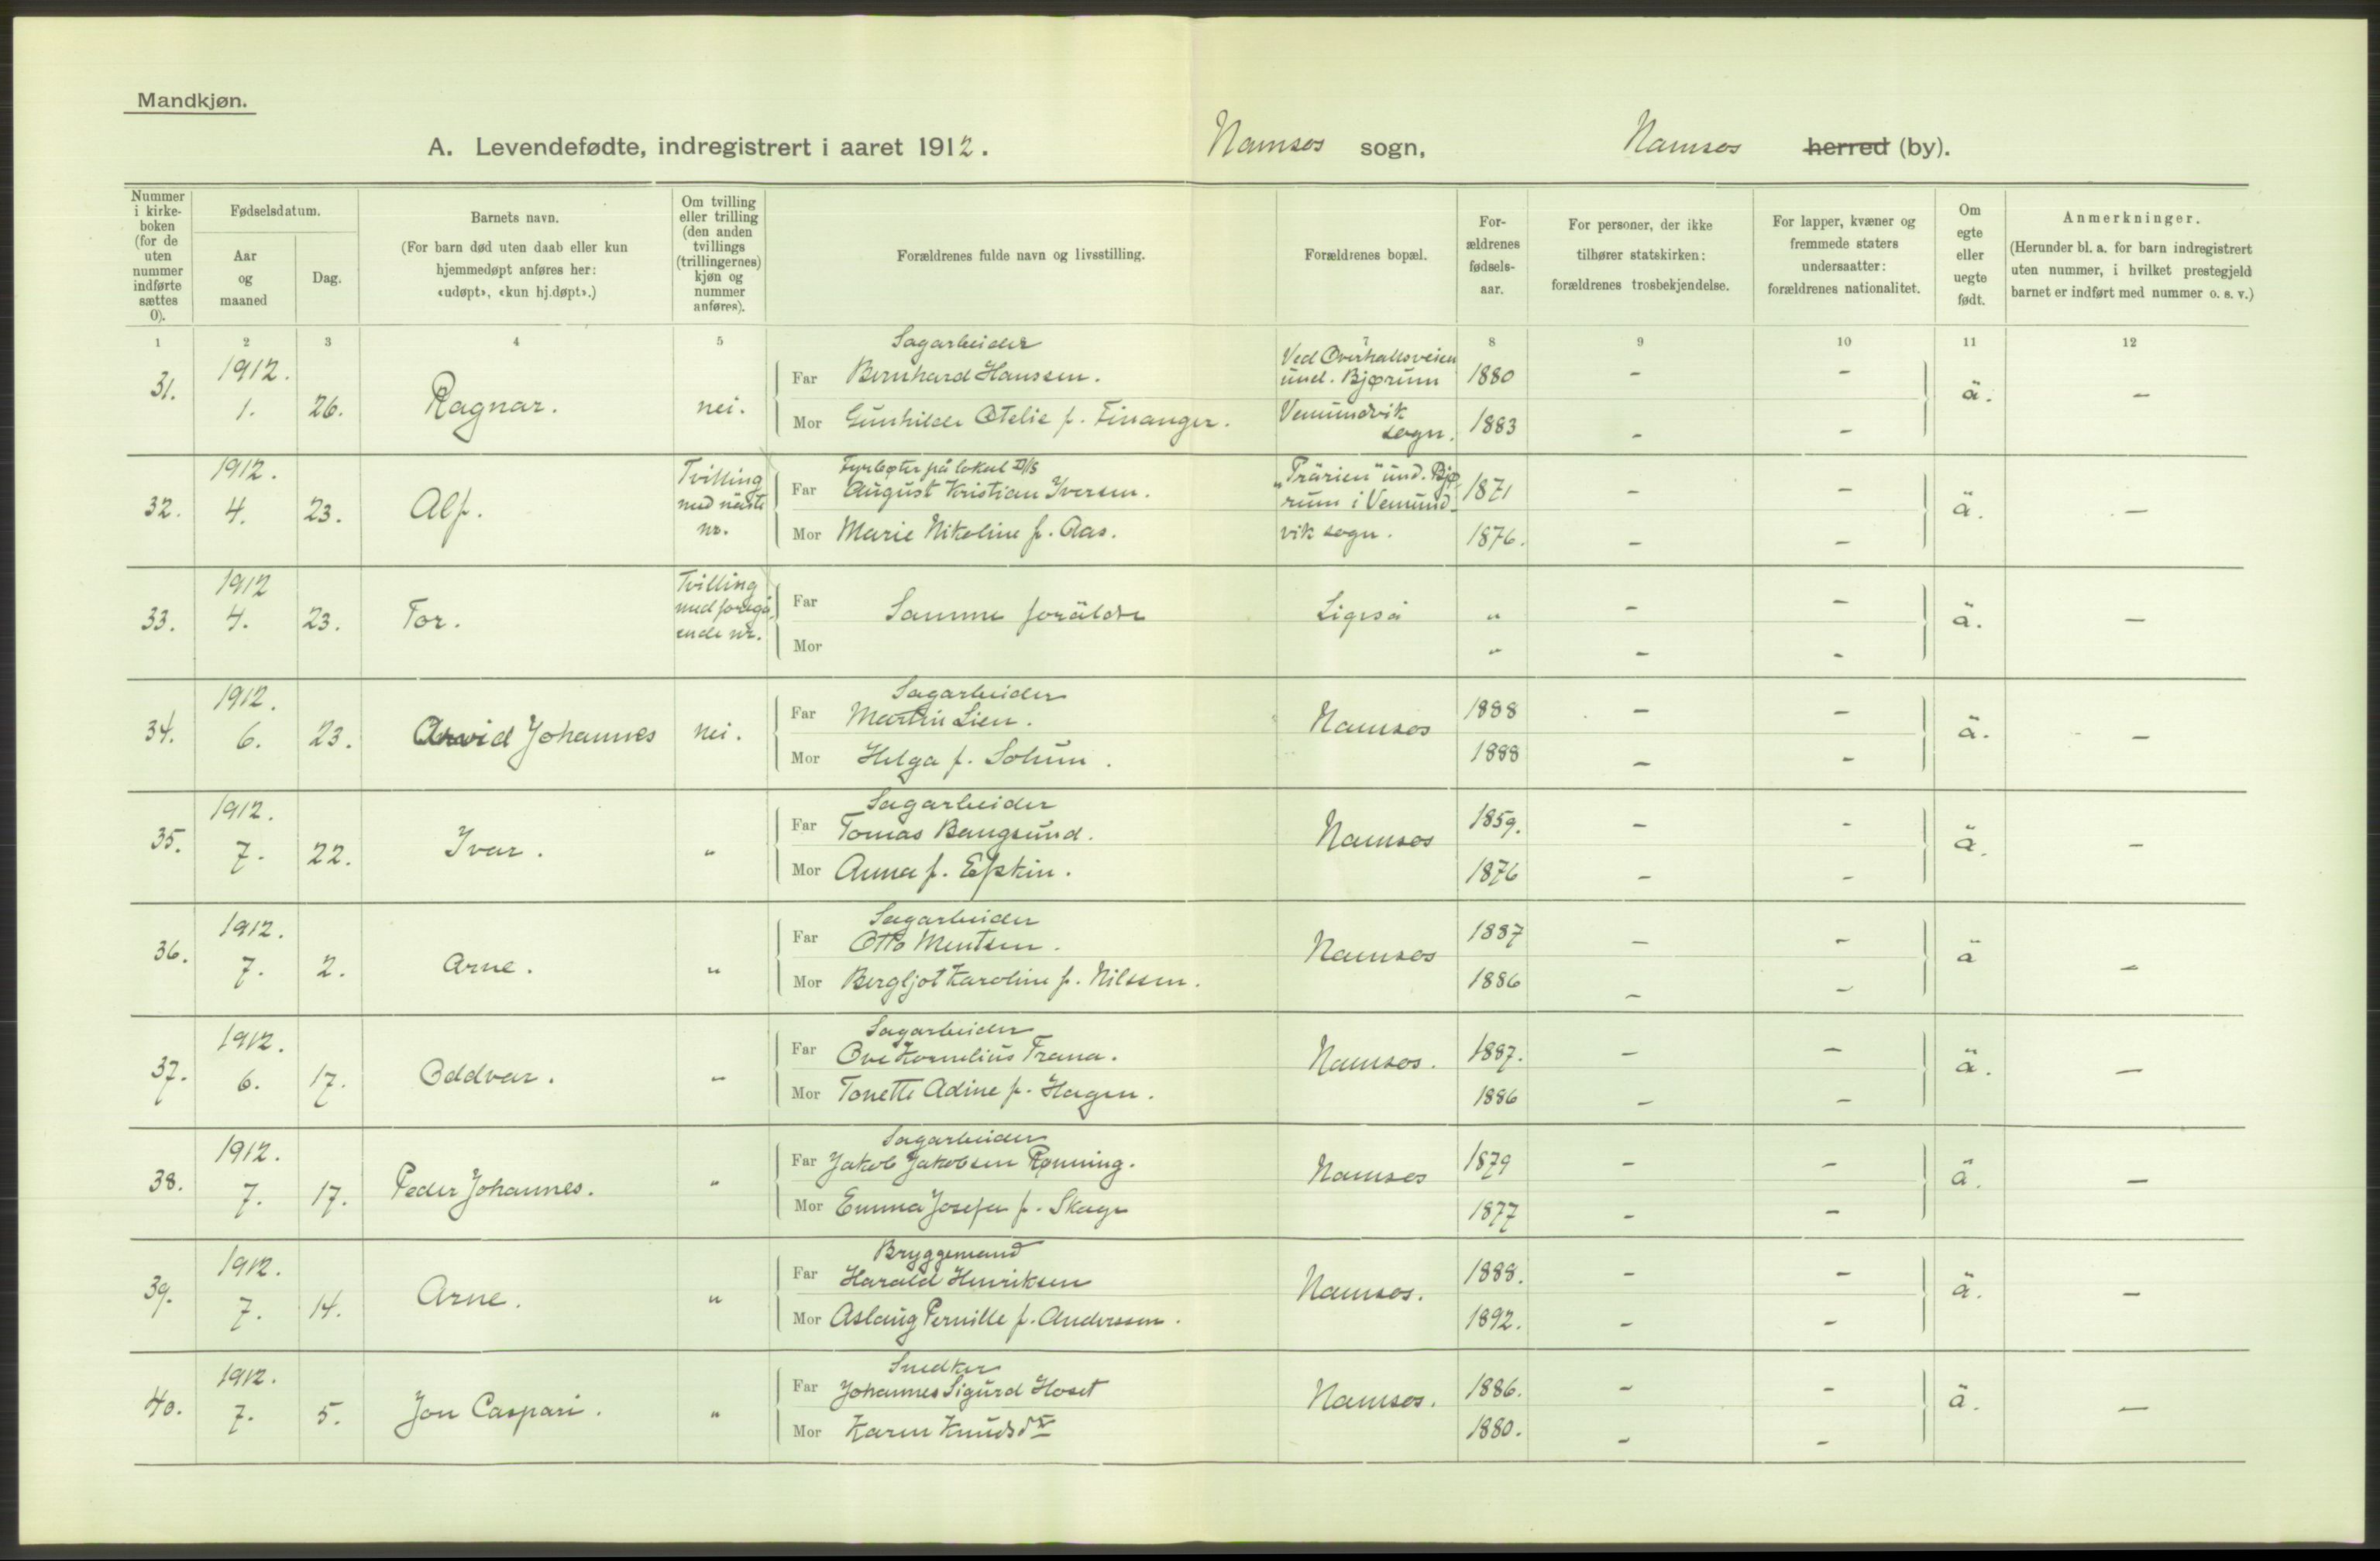 Mandkjøn.
A. Levendefødte, indregistrert i aaret 1912. Namsos sogn, Namsos herred (by).
Nummer i kirke- boken (for de uten nummer indførte sættes 0).
Fødselsdatum.
Aar og maaned
Dag.
Barnets navn.
(For barn død uten daab eller kun hjemmedøpt anføres her: «udøpt», «kun hj.døpt».)
Om tvilling eller trilling (den anden tvillings (trillingernes) kjøn og nummer anføres).
Forældrenes fulde navn og livsstilling.
Forældrenes bopæl.
For- ældrenes fødsels- aar.
For personer, der ikke tilhører statskirken: forældrenes trosbekjendelse.
For lapper, kvæner og fremmede staters undersaatter: forældrenes nationalitet.
Om egte eller uegte født.
Anmerkninger.
(Herunder bl. a. for barn indregistrert uten nummer, i hvilket prestegjeld barnet er indført med nummer o. s. v.)
1 2 3 4 5 7 8 9 10 11 12
31. 1912. 1. 26. Ragnar. nei.
Sagarbeider
Far Bernhard Hanssen. Ved Overhallsveien und. Bjørum 1880 - -
Mor Gunhilde Otelie f. Finanger. Vemundvik sogn. 1883 - - ä. -
32. 1912. 4. 23. Alf. Tvilling med näste nr.
Fyrbøter på lokal D/S
Far August Kristian Iversen. "Prärien" und. Bjø 1871 - -
rum i Vemund-
Mor Marie Nikoline f. Aas. vik sogn. 1876. - - ä. -
33. 1912 4. 23. Tor. Tvilling med foregå- ende nr.
Far Samme foräldre Ligeså " - -
Mor " - - ä. -
34. 1912. 6. 23. Arvid Johannes nei.
Sagarbeider
Far Martin Lien. Namsos 1888 - -
Mor Helga f. Solum. 1888 - - ä. -
35. 1912. 7. 22. Ivar. "
Sagarbeider
Far Tomas Bangsund. Namsos 1859. - -
Mor Anna f. Efskin. 1876 - - ä. -
36. 1912. 7. 2. Arne. "
Sagarbeider
Far Otto Mentsen. Namsos 1887 - -
Mor Bergljot Karoline f. Nilssen. 1886 - - ä -
37. 1912. 6. 17. Oddvar. "
Sagarbeider
Far Ove Kornelius Frana. Namsos. 1887. - -
Mor Tonette Adine f. Hagen. 1886 - - ä. -
38. 1912. 7. 17. Peder Johannes. "
Sagarbeider
Far Jakob Jakobsen Rønning. Namsos 1879 - -
Mor Emma Josefa f. Skage 1877 - - ä. -
39. 1912. 7. 14. Arne. "
Bryggemand
Far Harald Henriksen Namsos. 1888. - -
Mor Aslaug Pernille f. Anderssen. 1892. - - ä. -
40. 1912. 7. 5. Jon Caspari. "
Snedker
Far Johannes Sigurd Hoset Namsos. 1886. - -
Mor Karen Knudsdr 1880. - - ä. -